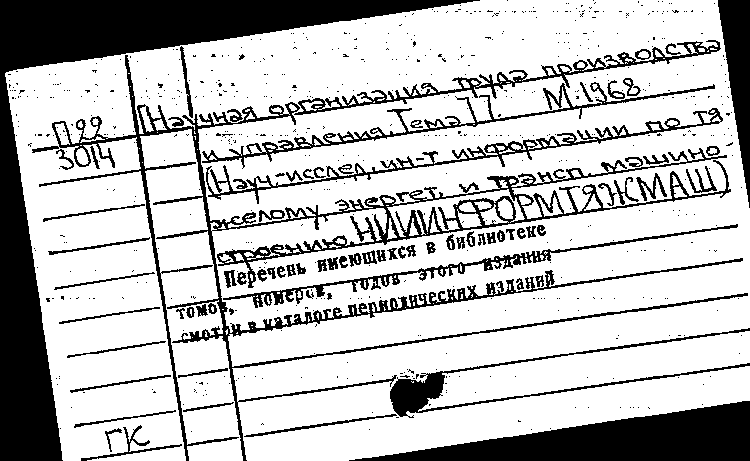 П22
3014
[Научная организация труда производства
и управления. Тема 77. М., 1968
(Науч.-исслед. ин-т информации по тя-
желому, энергет. и трансп. машино-
строению. НИИИНФОРМТЯЖМАШ)
Перечень имеющихся в библиотеке
томов, номеров, годов этого издания
смотри в каталоге периодических изданий
ГК